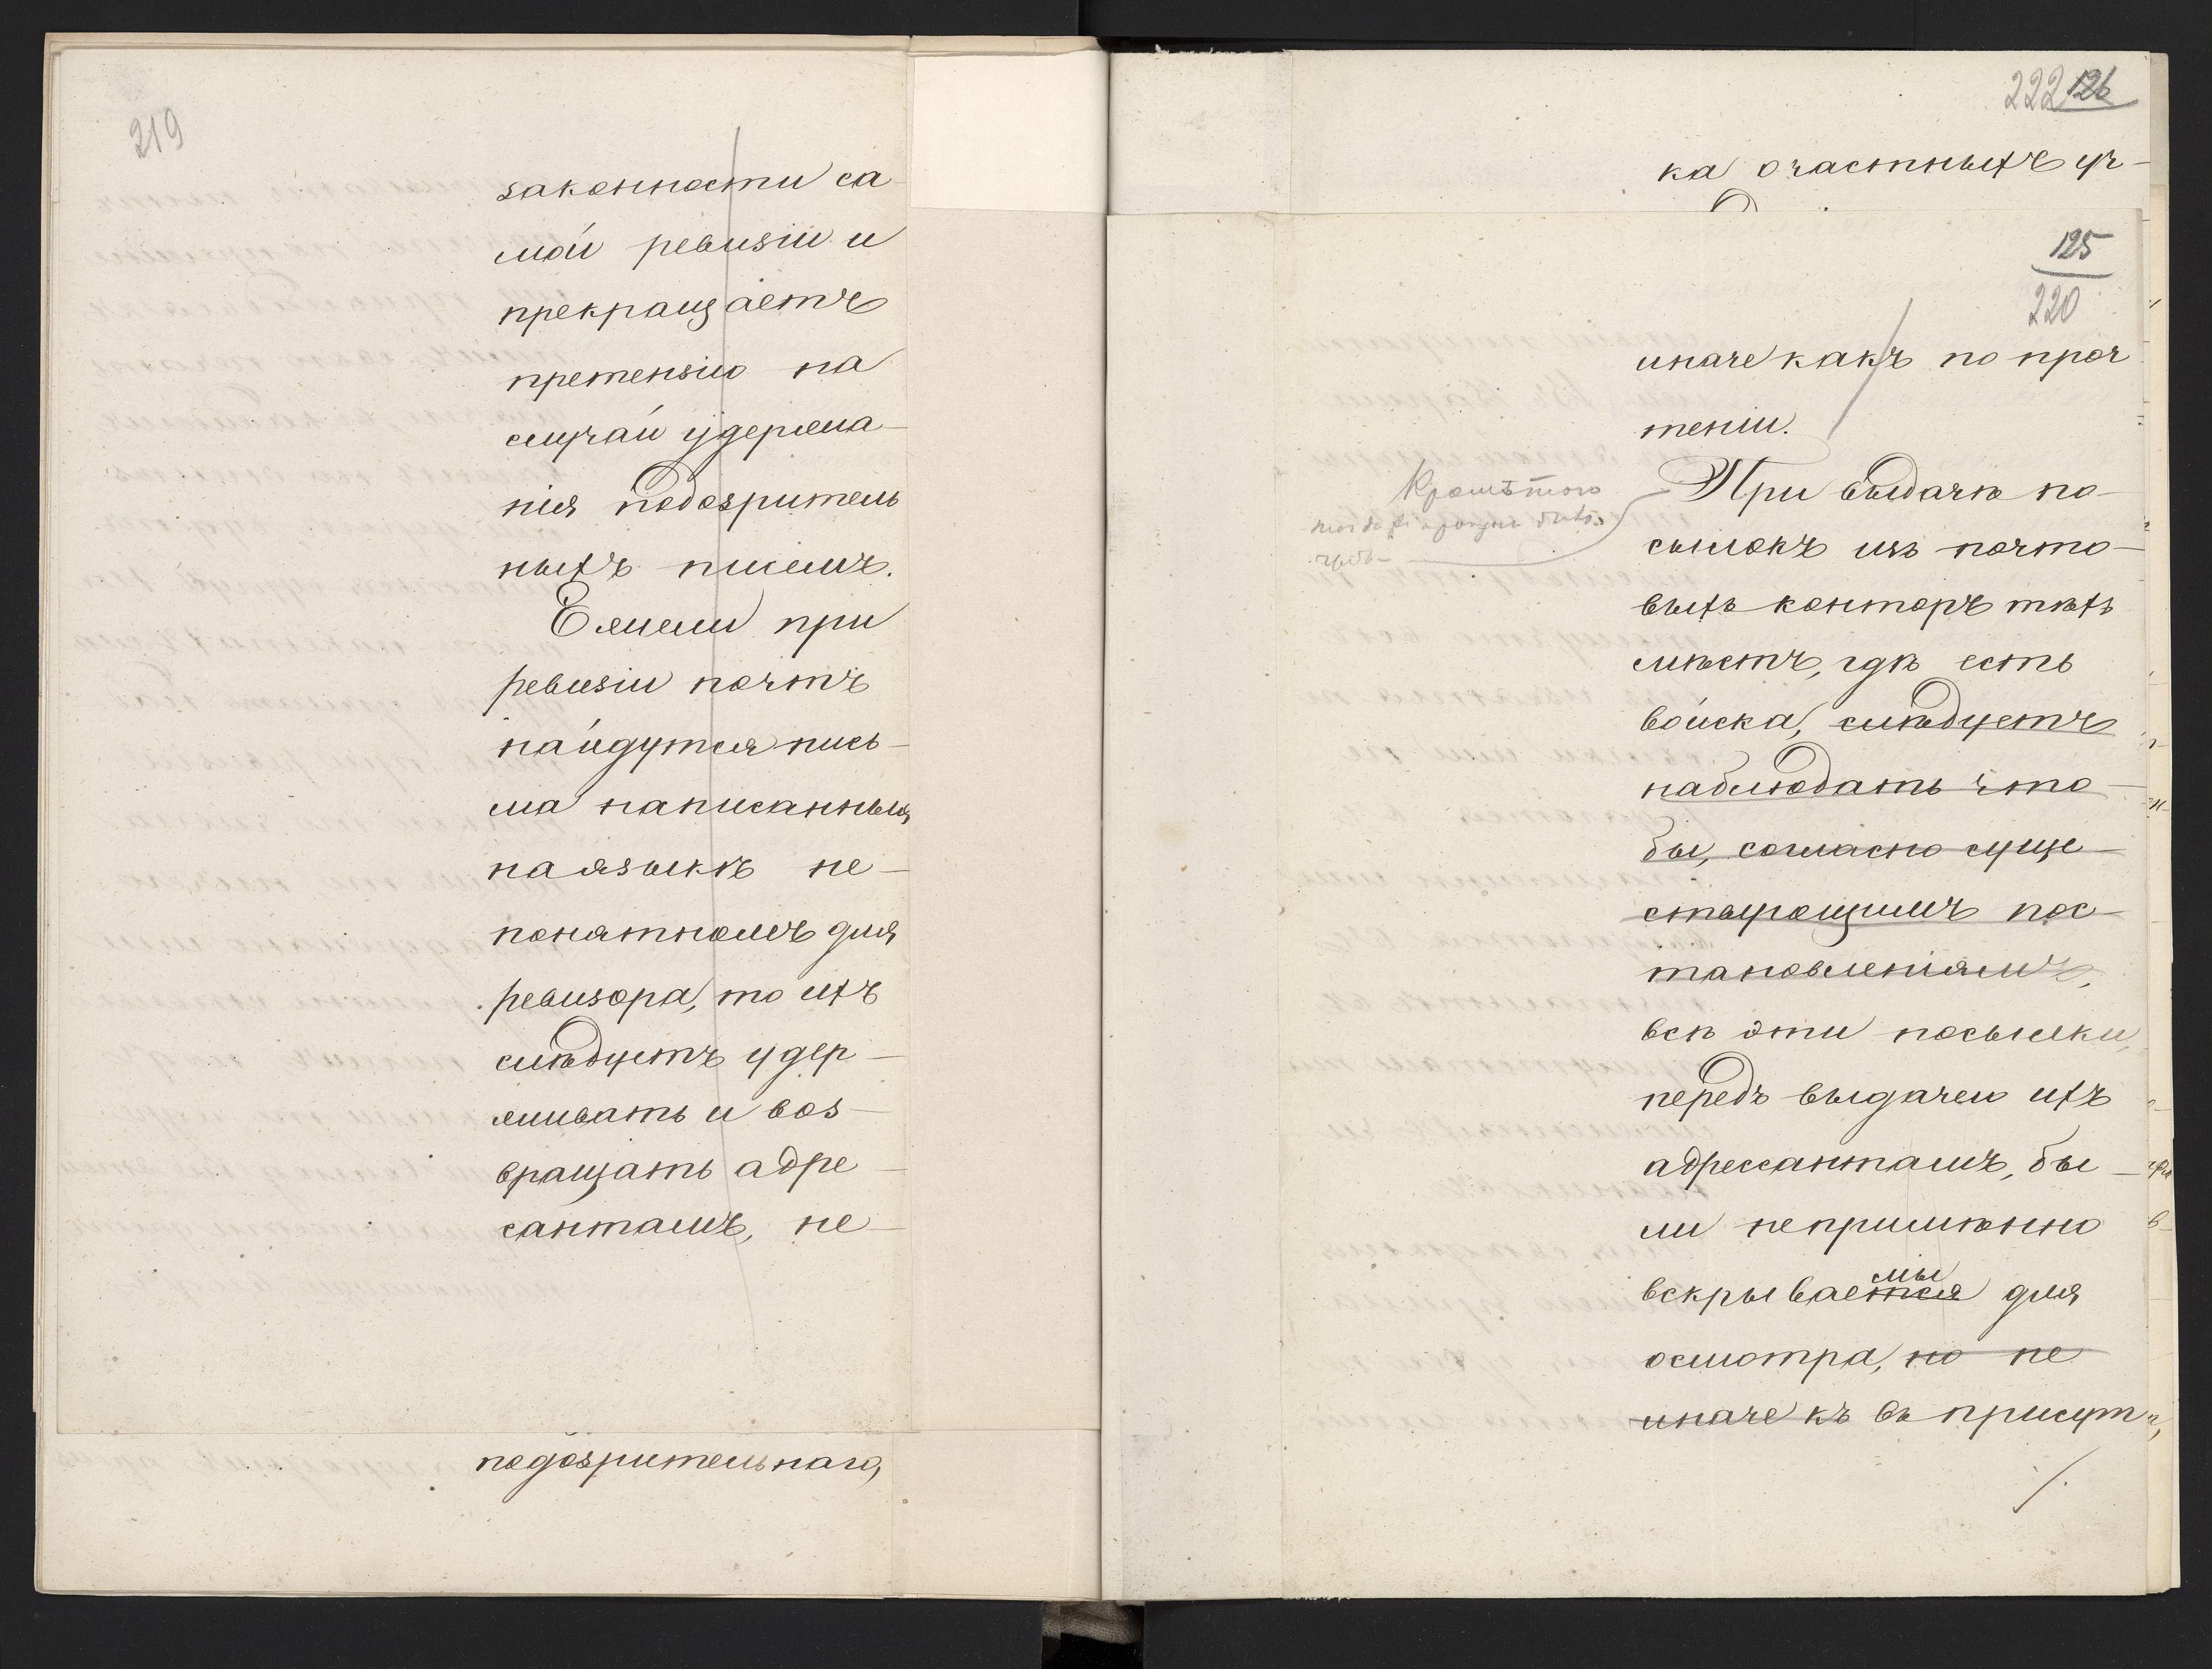 219
законности са-
мой ревизіи и
прекращаетъ
претензію на
случай удержа-
нія подозритель
ныхъ писемъ.
Ежели при
ревизіи почтъ
найдутся пись-
ма написанныя
на языкѣ не-
понятномъ для
ревизора, то ихъ
слѣдуетъ удер-
живать и воз-
вращать адре-
сантамъ, не-
подозрительнаго,
222 126
ка очастныхъ уч-
125
220
иначе какъ по проч
теніи.
Кромѣ того
При выдачѣ по-
сылокъ изъ почто-
выхъ конторъ тѣхъ
мѣстъ, гдѣ есть
войска, слѣдуетъ
наблюдать что-
бы, согласно суще-
ствующимъ пос-
тановленіямъ,
всѣ эти посылки,
передъ выдачею ихъ
адрессантамъ, бы-
ли непримѣнно
мы
вскрываются для
осмотра, но не
иначе къ въ присут